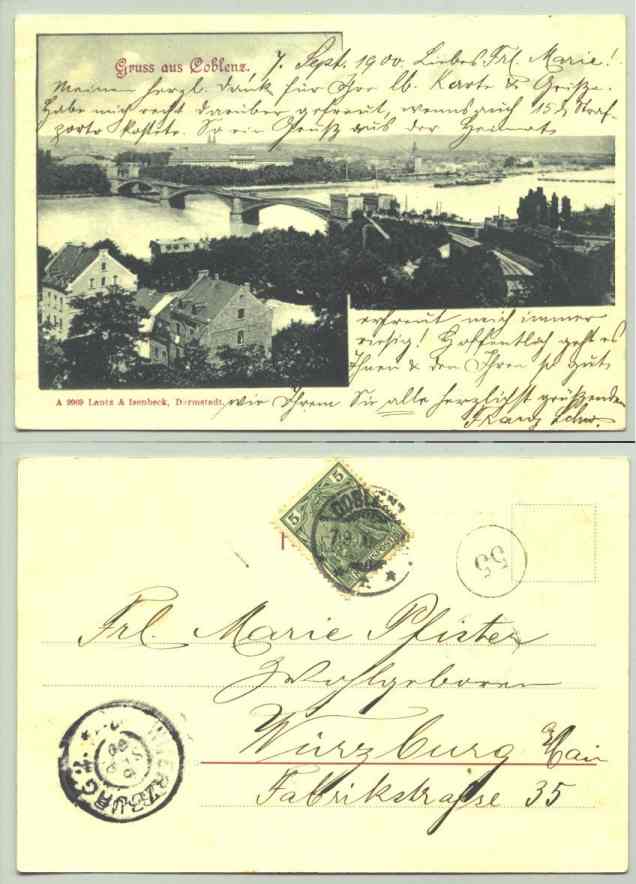 Gruss aus Coblenz.
7. Sept. 1900. Liebes Frl. Marie!
Meinen herzl. Dank für Ihre lb. Karte & Grüße.
Habe mich recht darüber gefreut, wenns auch 15 ₰ Straf-
porto kostete. So ein Gruß aus der Heimat
erfreut mich immer
riesig! Hoffentlich geht es
Ihnen & den Ihren so gut
wie Ihrem Sie alle herzlichst grüßenden
Franz
A 2969 Lautz & Isenbeck, Darmstadt.
5
COBLENZ
7.9.
55
Frl. Marie Pfister
Wohlgeboren
Würzburg Main
Fabrikstrasse 35
WUERZBURG